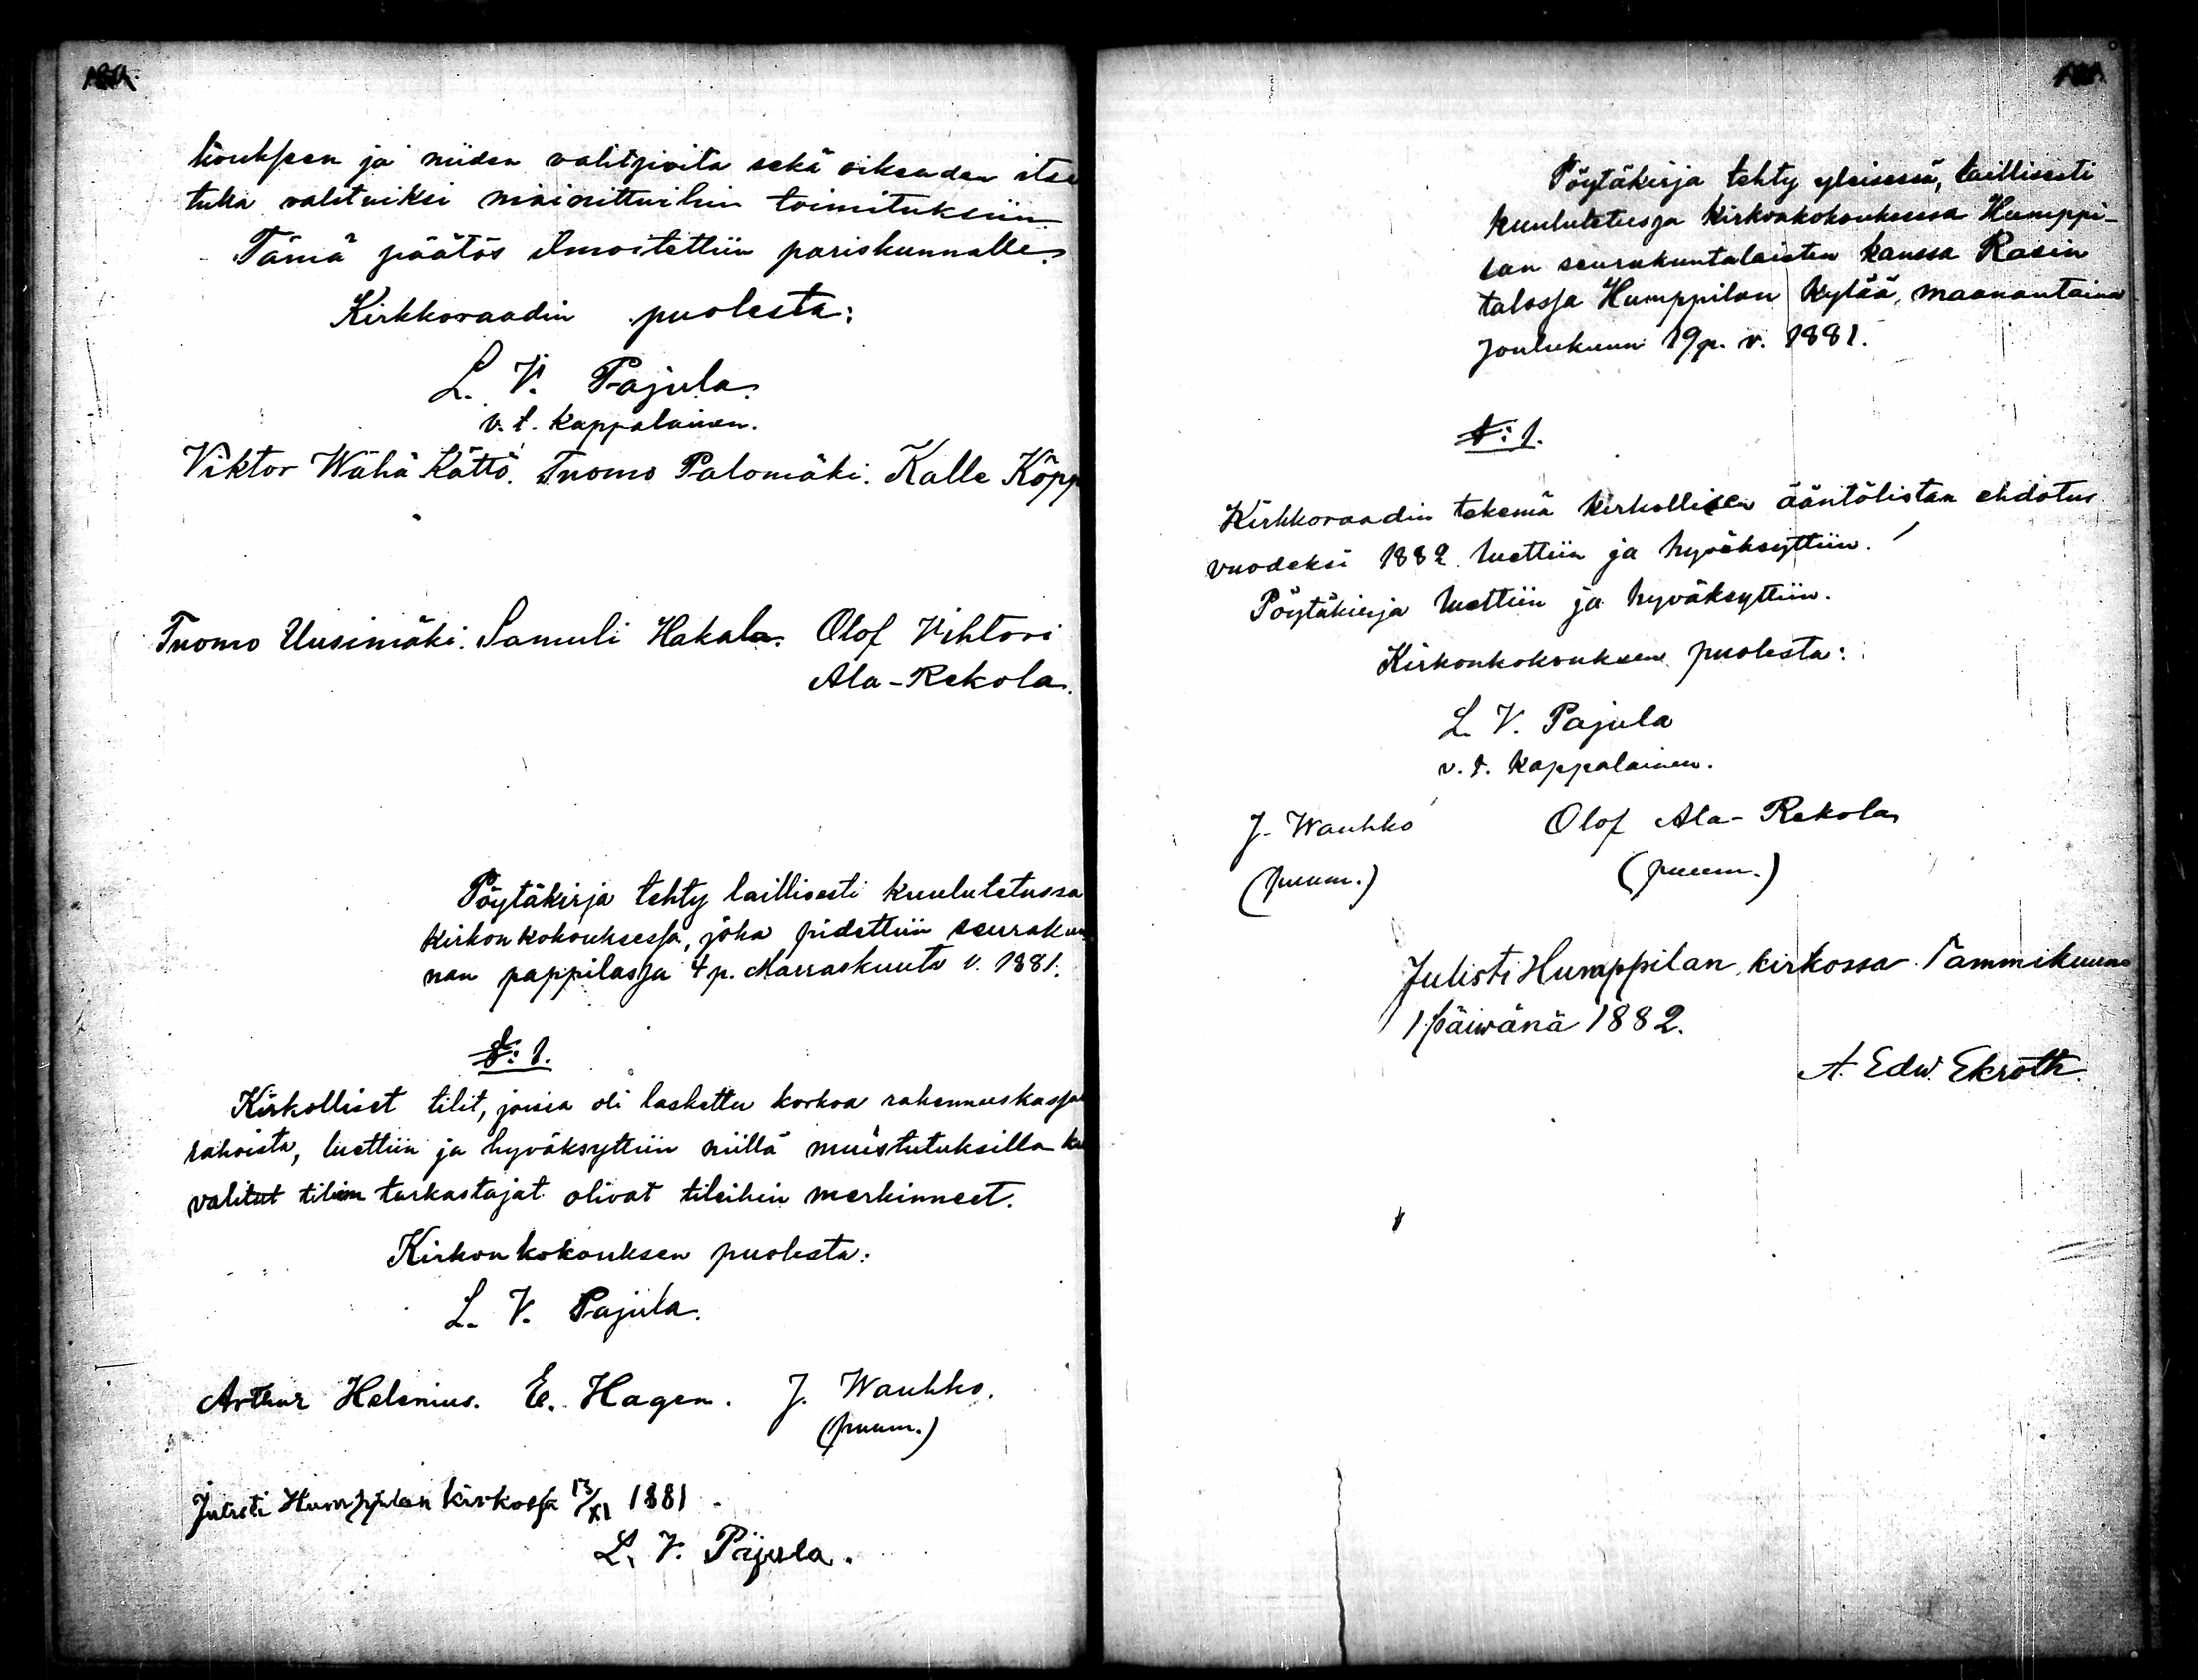 koukseen ja niiden valitsioita sekä oikeuden itse
tulla valituiksi mainittuihin toimituksiin.
Tämä päätös ilmoitettiin pariskunnalle.
Kirkkoraadin puolesta:
L. V. Pajula.
v. t. kappalainen.
Viktor Wähä Kättö. Tuomo Palomäki. Kalle Köpp
Tuomo Uusimäki. Samuli Hakala. Olof Vihtori
Ala-Rekola.
Pöytäkirja tehty laillisesti kuulutetussa
kirkonkokouksessa, joka pidettiin seurakun
nan pappilassa 4 p. Marraskuuta v. 1881.
§: 1.
Kirkolliset tilit, joissa oli laskettu korkoa rakennuskassan
rahoista, luettiin ja hyväksyttiin niillä muistutuksilla ku
valitut tilien tarkastajat olivat tileihin merkinneet.
Kirkonkokouksen puolesta:
L. V. Pajula.
Arthur Helenius. E. Hagen. J. Wauhko.
(puum.)
Julisti Humppilan kirkossa 13/XI 1881
L. V. Pajula.
Pöytäkirja tehty yleisessä, laillisesti
kuulutetussa kirkonkokouksessa Humppi-
lan seurakuntalaisten kanssa Rasin
talossa Humppilan kylää, maanantaina
Joulukuun 19 p. v. 1881.
§: 1.
Kirkkoraadin tekemä kirkollisen ääntölistan ehdotus
vuodeksi 1882 luettiin ja hyväksyttiin.
Pöytäkirja luettiin ja hyväksyttiin.
Kirkonkokouksen puolesta:
L. V. Pajula
v. t. kappalainen.
J. Wauhko Olof Ala-Rekola
(puum.) (puum.)
Julisti Humppilan kirkossa Tammikuun
1 päiwänä 1882.
A. Edw. Ekroth.